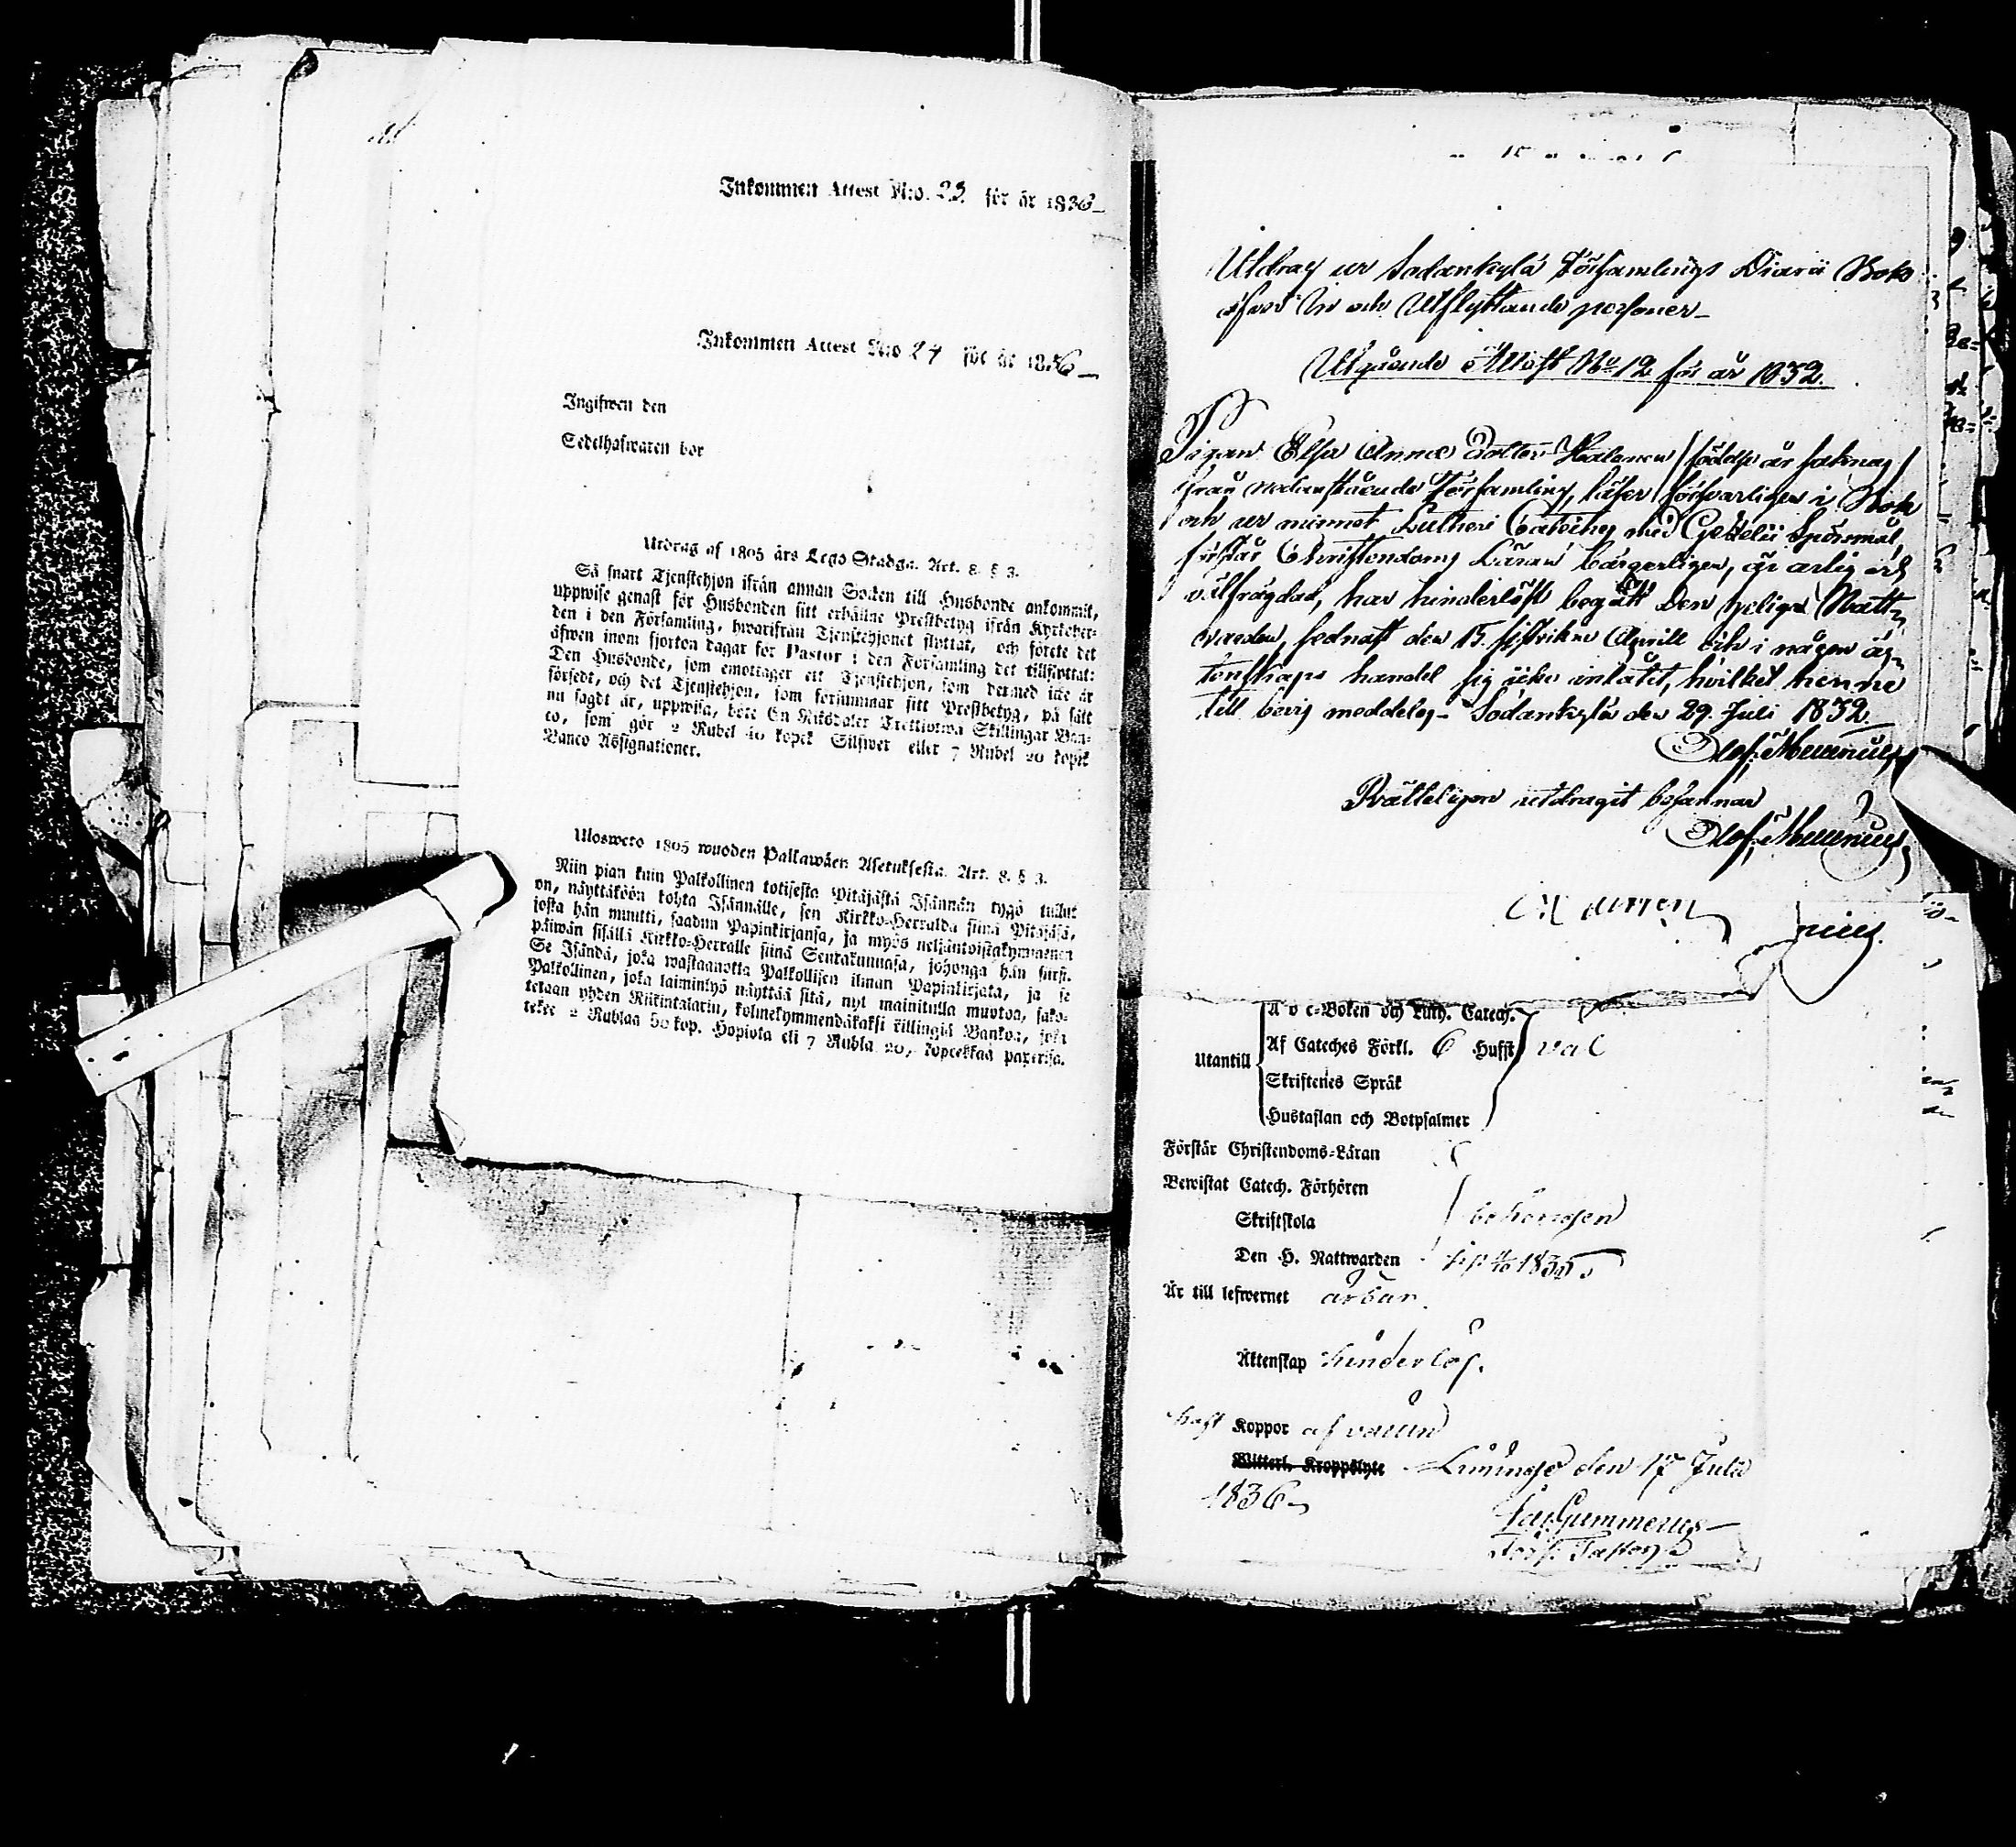 Inkommen Attest N:o. 23. för år 1836
Inkommen Attest N:o 24 för år 1836
Ingifwen den
Sedelhafwaren bor
Utdrag af 1805 års Lego Stadga. Art. 8. § 3.
Så snart Tjenstehjon ifrån annan Socken till Husbonde ankommit,
uppwise genast för Husbonden sitt erhållne Prestbetyg ifrån Kyrkoher-
den i den Församling, hwarifrån Tjenstehjonet flyttat, och förete det
äfwen inom fjorton dagar för Pastor i den Församling det tillflyttat:
Den Husbonde, som emottager ett Tjenstehjon, som dermed icke är
försedt, och det Tjenstehjon, som försummar sitt Prestbetyg, på sätt
nu sagdt är, uppwisa, böte En Riksdaler Trettiotwå Skillingar Ban-
co, som gör 2 Rubel 40 kopek Silfwer eller 7 Rubel 20 kopek
Banco Assignationer.
Ulosweto 1805 wuoden Palkawäen Asetuksesta. Art. 8. § 3.
Niin pian kuin Palkollinen toisesta Pitäjästä Isännän tygö tullut
on, näyttäköön kohta Isännälle, sen Kirkko-Herralda siinä Pitäjäsä,
josta hän muutti, saadun Papinkirjansa, ja myös neljäntoistakymmenen
päiwän sisällä Kirkko-Herralle siinä Seurakunnasa, johonga hän siirsi.
Se Isändä, joka wastaanotta Palkollisen ilman Papinkirjata, ja se
Palkollinen, joka laiminlyö näyttää sitä, nyt mainitulla muotoa, sako-
tetaan yhden Riikintalarin, kolmekymmendäkaksi killingiä Bankoa, joka
tekee 2 Rublaa 40 kop. Hopiota eli 7 Rubla 20, kopeekkaa paperisa.
Utdrag ur Sodankylä Församlings Diarii Bok
öfver In och Utflyttande personer
Utgående Attest No 12 för år 1832.
Pigan Elsa Anna dotter Halonen / födelse år saknas /
ifrån nedanstående Församling, läser försvarligen i Bok
och ur minnet Lutheri Cateches med Gezelii Spörsmål,
förstår Christendoms Läran bärgerligen, är ärlig och
välfrägdad, har hinderlöst begått Den heliga Natt-
varden, sednast den 15. sistvikne April och i någon äg-
tenskaps handel sig icke inlåtit, hvilket henne
till bevis meddelas. Sodankylä den 29. Juli 1832.
Rätteligen utdragit befannar
Utantill
A b c-Boken och Luth. Catech.
Af Cateches Förkl. 6 Hufst. väl
Skriftenes Språk
Hustaflan och Botpsalmer
Förstår Christendoms-Läran
Bewistat Catech. Förhören
Skriftskola behörigen
Den H. Nattwarden 1835
Är till lefwernet ärbar.
Äktenskap hinderlös.
haft Koppor af vaccin
Witterl. Kroppslyte Limingo den 17 Julii
1836
Gummerus